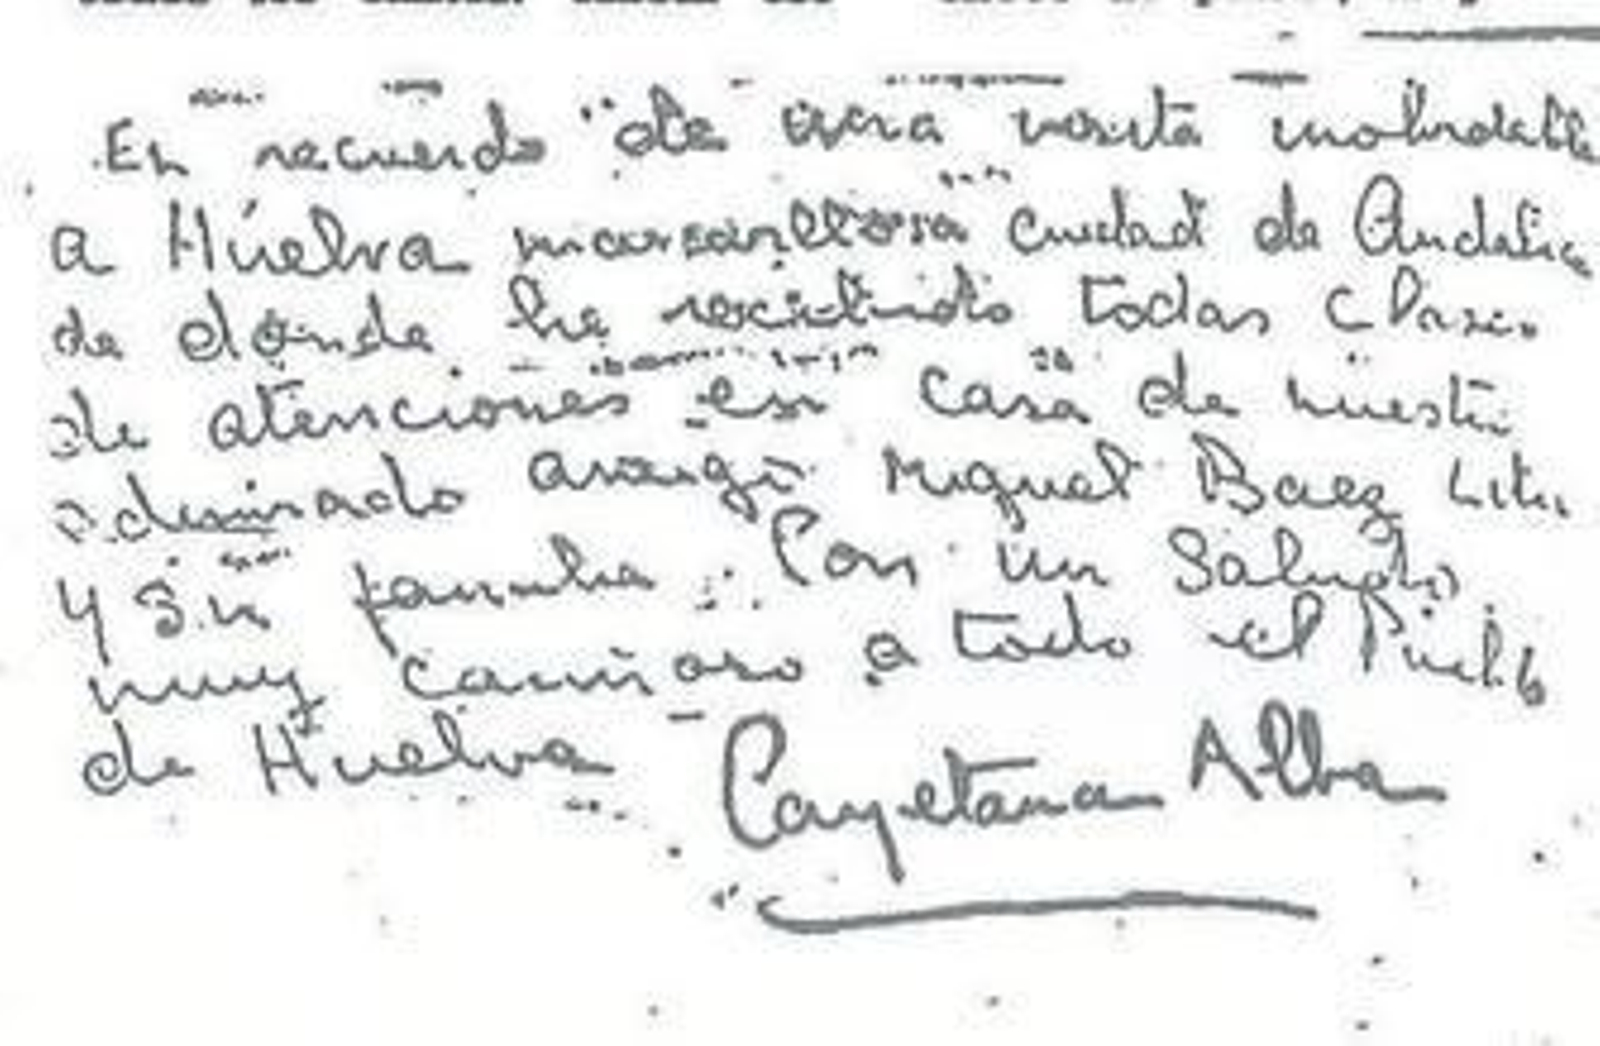 En recuerdo de una visita inolvidable
a Huelva maravillosa ciudad de Andalucia
de donde he recibido todas clases
de atenciones en casa de nuestro
admirado amigo Miguel Baez Litri
y su familia. Con un Saludo
muy cariñoso a todo el Pueblo
de Huelva
Cayetana Alba